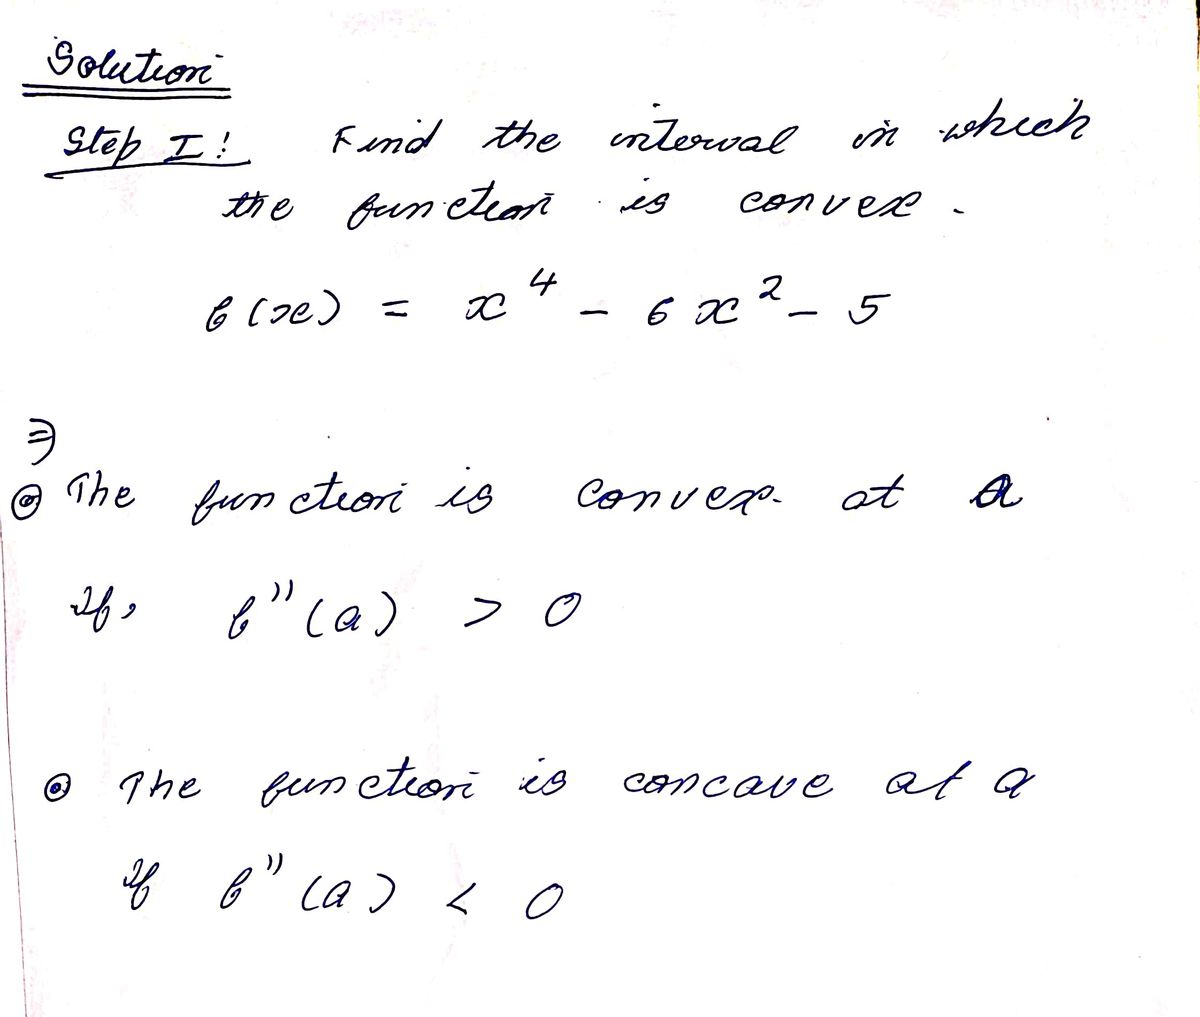 Solution
Step I! Find the interval in which
the function is convex.
f(x) = x⁴ - 6x² - 5
⇒
◎ The function is convex at a
If, f''(a) > 0
◎ The function is concave at a
if f''(a) < 0